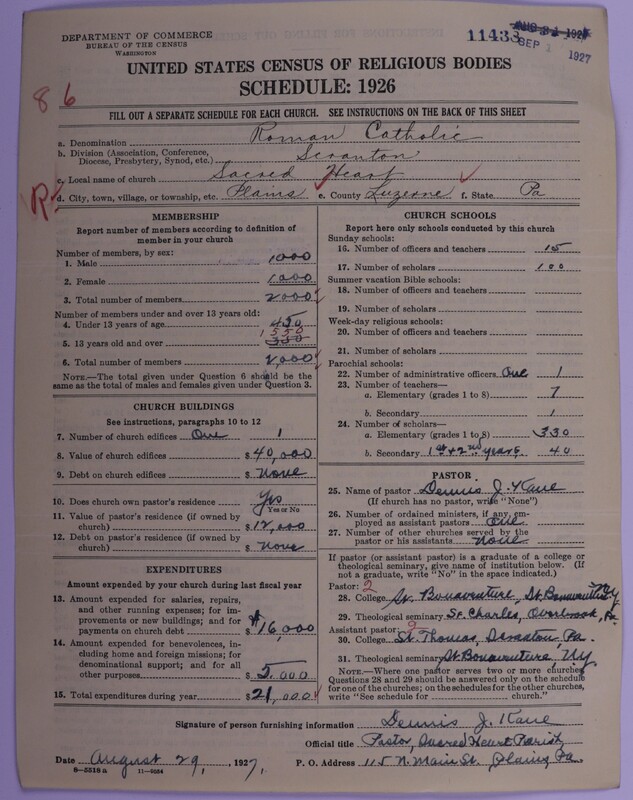 DEPARTMENT OF COMMERCE
BUREAU OF THE CENSUS
WASHINGTON
11433
AUG 31 1927
SEP 1 1927
UNITED STATES CENSUS OF RELIGIOUS BODIES
SCHEDULE: 1926
86
FILL OUT A SEPARATE SCHEDULE FOR EACH CHURCH. SEE INSTRUCTIONS ON THE BACK OF THIS SHEET
a. Denomination Roman Catholic
b. Division (Association, Conference, Diocese, Presbytery, Synod, etc.) Scranton
c. Local name of church Sacred Heart
R
d. City, town, village, or township, etc. Plains e. County Luzerne f. State Pa
MEMBERSHIP
Report number of members according to definition of member in your church
Number of members, by sex:
1. Male 1000
2. Female 1000
3. Total number of members 2000
Number of members under and over 13 years old:
4. Under 13 years of age 450
5. 13 years old and over 1550
6. Total number of members 2,000
NOTE.—The total given under Question 6 should be the same as the total of males and females given under Question 3.
CHURCH BUILDINGS
See instructions, paragraphs 10 to 12
7. Number of church edifices One 1
8. Value of church edifices $40,000
9. Debt on church edifices $ None
10. Does church own pastor's residence? Yes
Yes or No
11. Value of pastor's residence (if owned by church) $12,000
12. Debt on pastor's residence (if owned by church) $ None
EXPENDITURES
Amount expended by your church during last fiscal year
13. Amount expended for salaries, repairs, and other running expenses; for improvements or new buildings; and for payments on church debt $16,000
14. Amount expended for benevolences, including home and foreign missions; for denominational support; and for all other purposes $5.000
15. Total expenditures during year $21,000
CHURCH SCHOOLS
Report here only schools conducted by this church
Sunday schools:
16. Number of officers and teachers 15
17. Number of scholars 100
Summer vacation Bible schools:
18. Number of officers and teachers
19. Number of scholars
Week-day religious schools:
20. Number of officers and teachers
21. Number of scholars
Parochial schools:
22. Number of administrative officers One 1
23. Number of teachers—
a. Elementary (grades 1 to 8) 7
b. Secondary 1
24. Number of scholars—
a. Elementary (grades 1 to 8) 330
b. Secondary 1st & 2nd years 40
PASTOR
25. Name of pastor Dennis J. Kane
(If church has no pastor, write "None")
26. Number of ordained ministers, if any, employed as assistant pastors one
27. Number of other churches served by the pastor or his assistants None
If pastor (or assistant pastor) is a graduate of a college or theological seminary, give name of institution below. (If not a graduate, write "No" in the space indicated.)
Pastor: 2
28. College St. Bonaventure, St. Bonaventure NY
29. Theological seminary St. Charles, Overbrook, Pa.
Assistant pastor: 9
30. College St. Thomas, Scranton, Pa.
31. Theological seminary St. Bonaventure, NY
NOTE.—Where one pastor serves two or more churches, Questions 28 and 29 should be answered only on the schedule for one of the churches; on the schedules for the other churches, write "See schedule for church."
Signature of person furnishing information Dennis J. Kane
Official title Pastor, Sacred Heart Parish
Date August 29, 1927. P. O. Address 115 N. Main St. Plains, Pa.
8—5318 a 11—9554